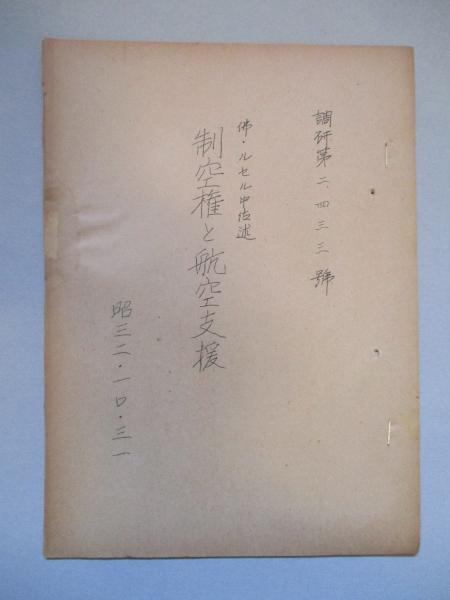 調研第二、四三三號
佛・ルセル中佐述
制空権と航空支援
昭三二・一〇・三一